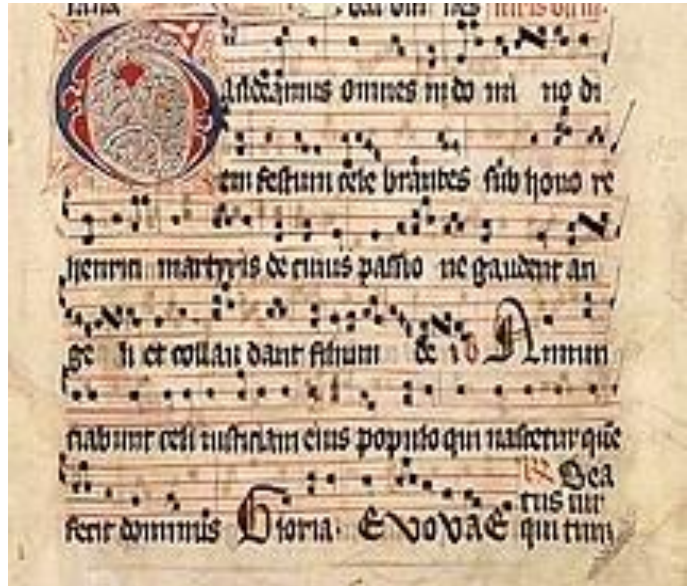 Gaudeamus omnes in do mi no di
em festum cele brantes sub hono re
henrici martyris de cuius passio ne gaudent an
ge li et collau dant filium de i Annun
ciabunt celi iusticiam eius populo qui nascetur que
fecit dominus Gloria. EVOVAE
Bea
tus uir
qui tim